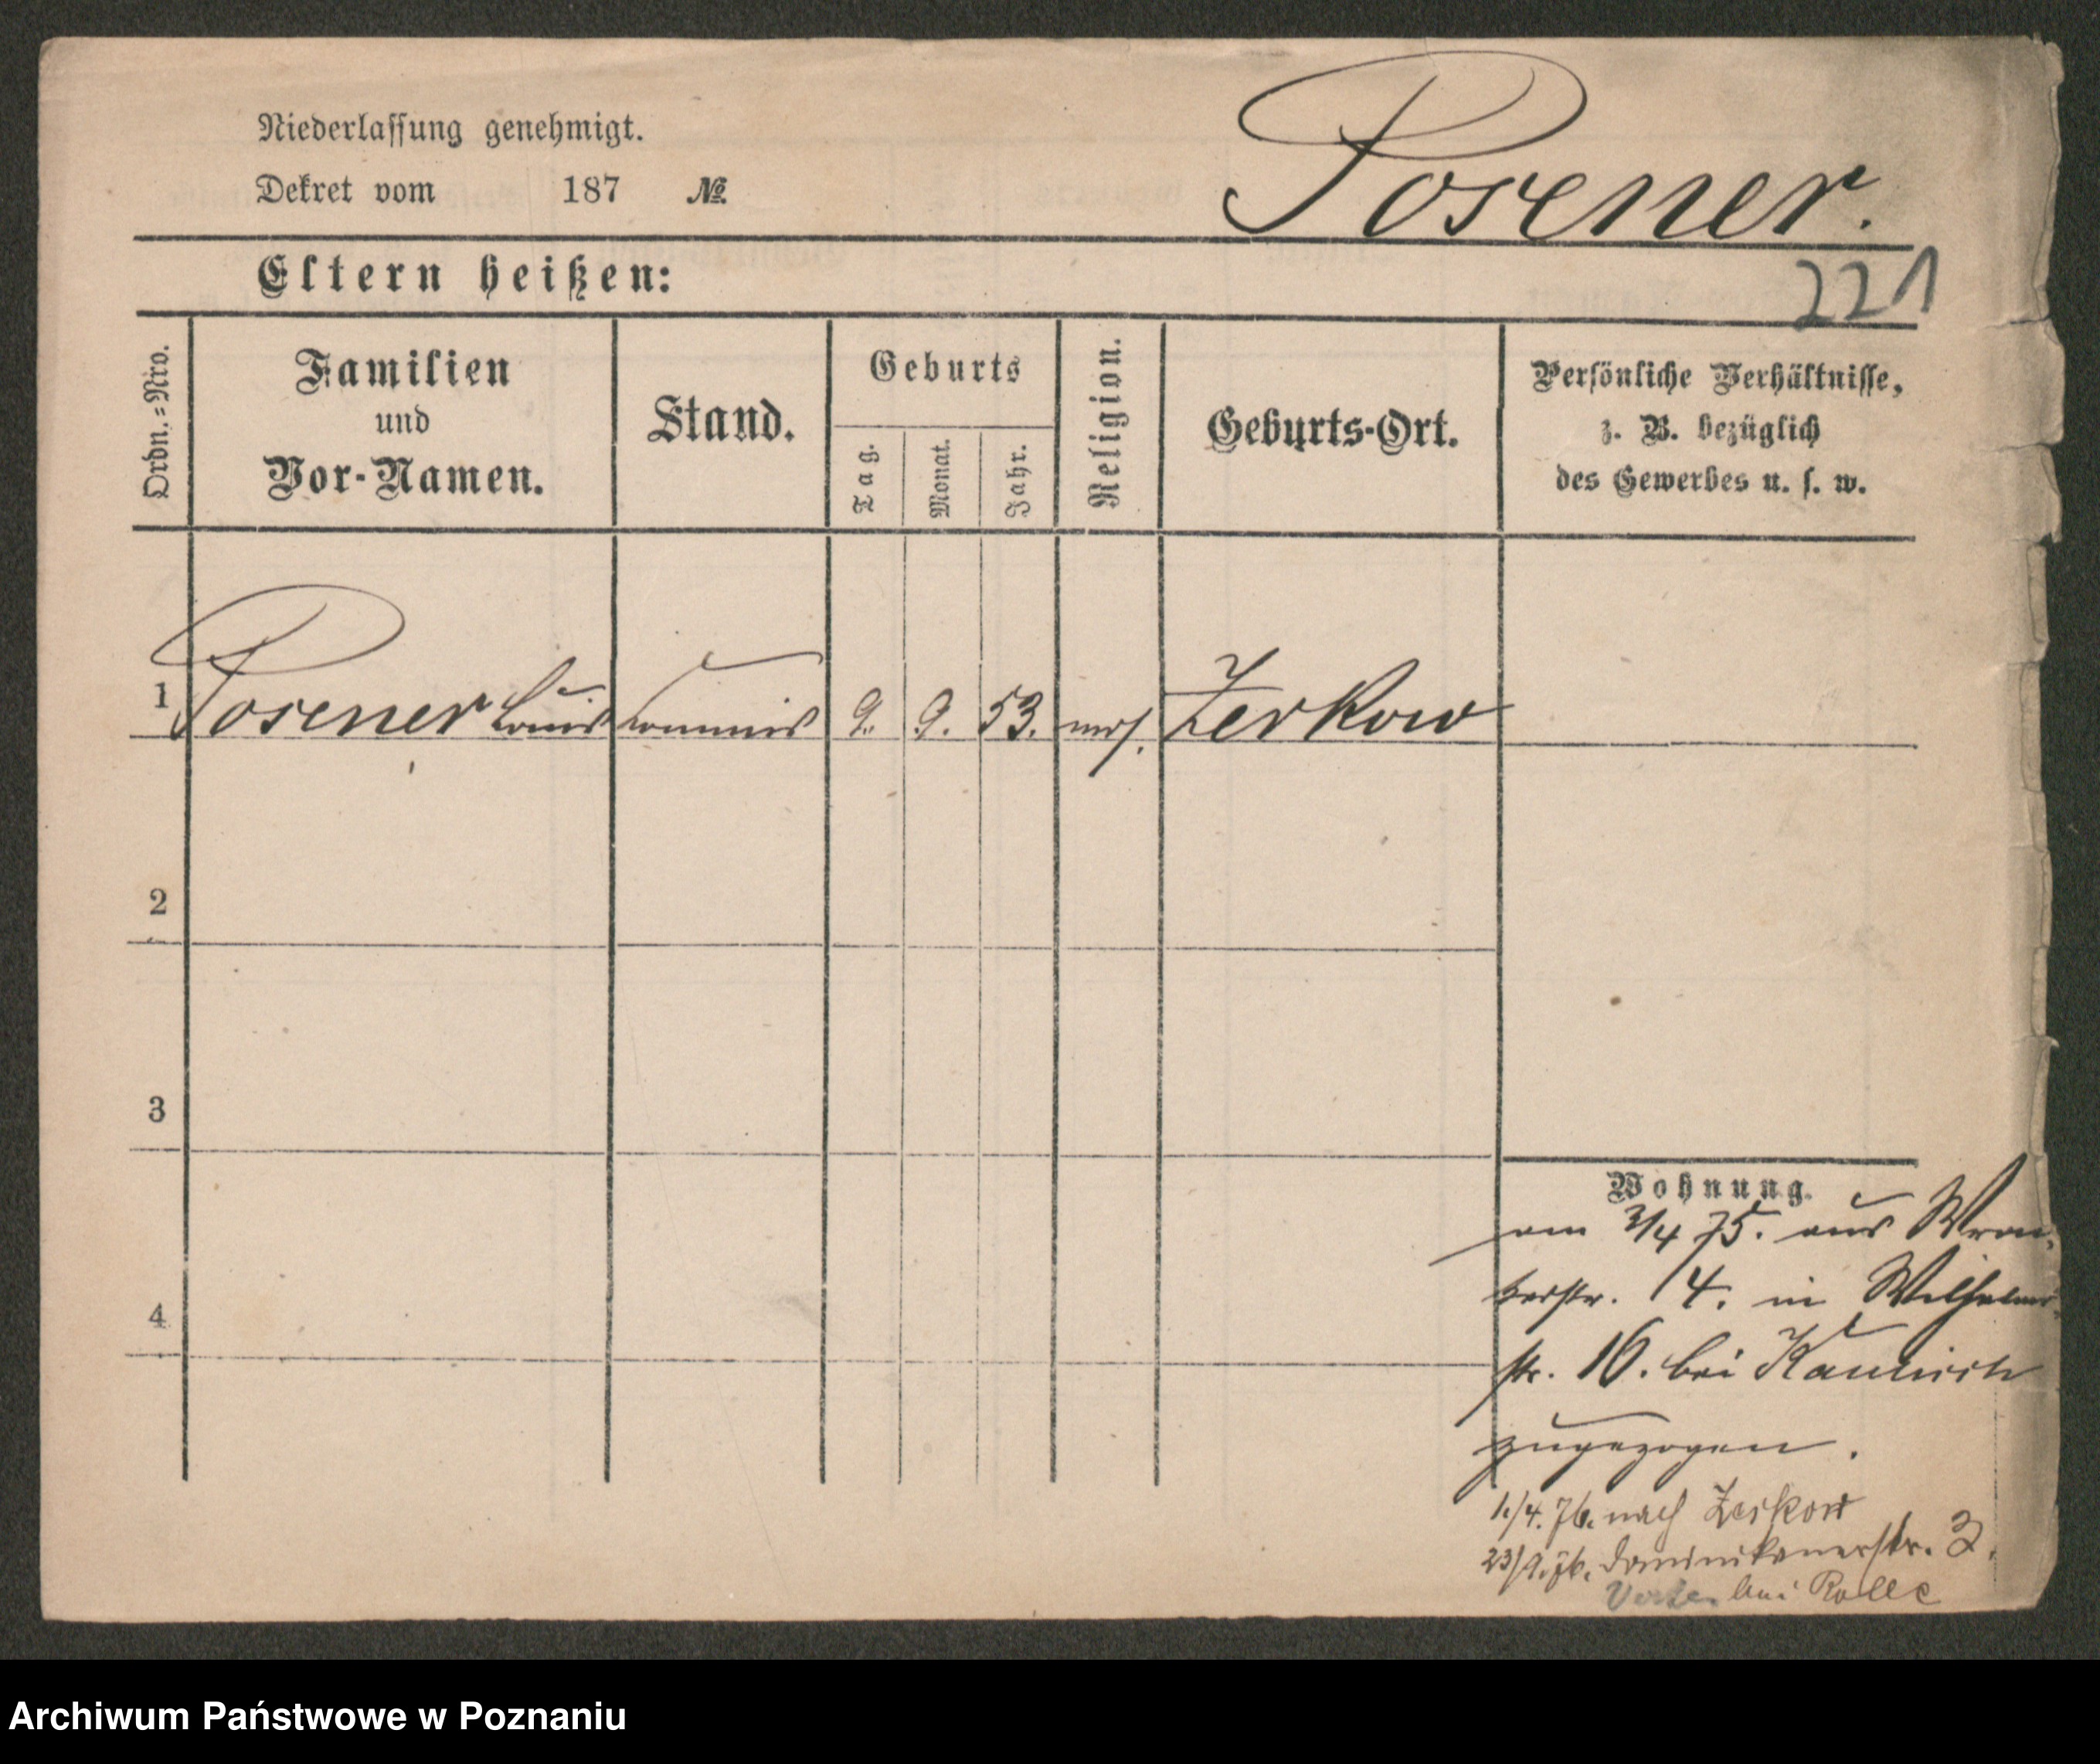 Niederlassung genehmigt.
Dekret vom 187 №
Posener.
Eltern heißen:
221
Ordn.=Nro.
Familien
und
Vor-Namen.
Stand.
Geburts
Tag.
Monat.
Jahr.
Religion.
Geburts-Ort.
Persönliche Verhältnisse,
z. B. bezüglich
des Gewerbes u. s. w.
1 Posener Louis Commis 9. 9. 53. mos. Zerkow
2
3
4
Wohnung.
am 3/4 75. aus Wron-
kerstr. 14. in Wilhelms-
str. 16. bei
zugezogen.
1./4. 76. nach Zerkow
23/9. 76. Dominikanerstr. 3.
bei Rolle
Archiwum Państwowe w Poznaniu